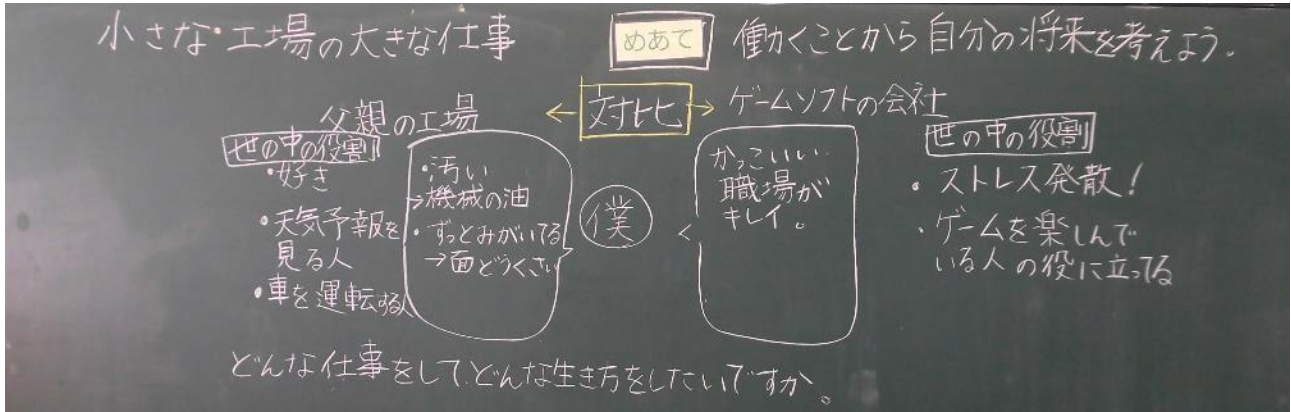 小さな工場の大きな仕事
めあて
働くことから自分の将来を考えよう。
父親の工場
← 対比 →
ゲームソフトの会社
世の中の役割
・好き
・天気予報を
見る人
・車を運転する人
・汚い
→機械の油
・ずっとみがいてる
→面どうくさい
僕
<
かっこいい
職場が
キレイ。
世の中の役割
・ストレス発散!
・ゲームを楽しんで
いる人の役に立ってる
どんな仕事をして、どんな生き方をしたいですか。